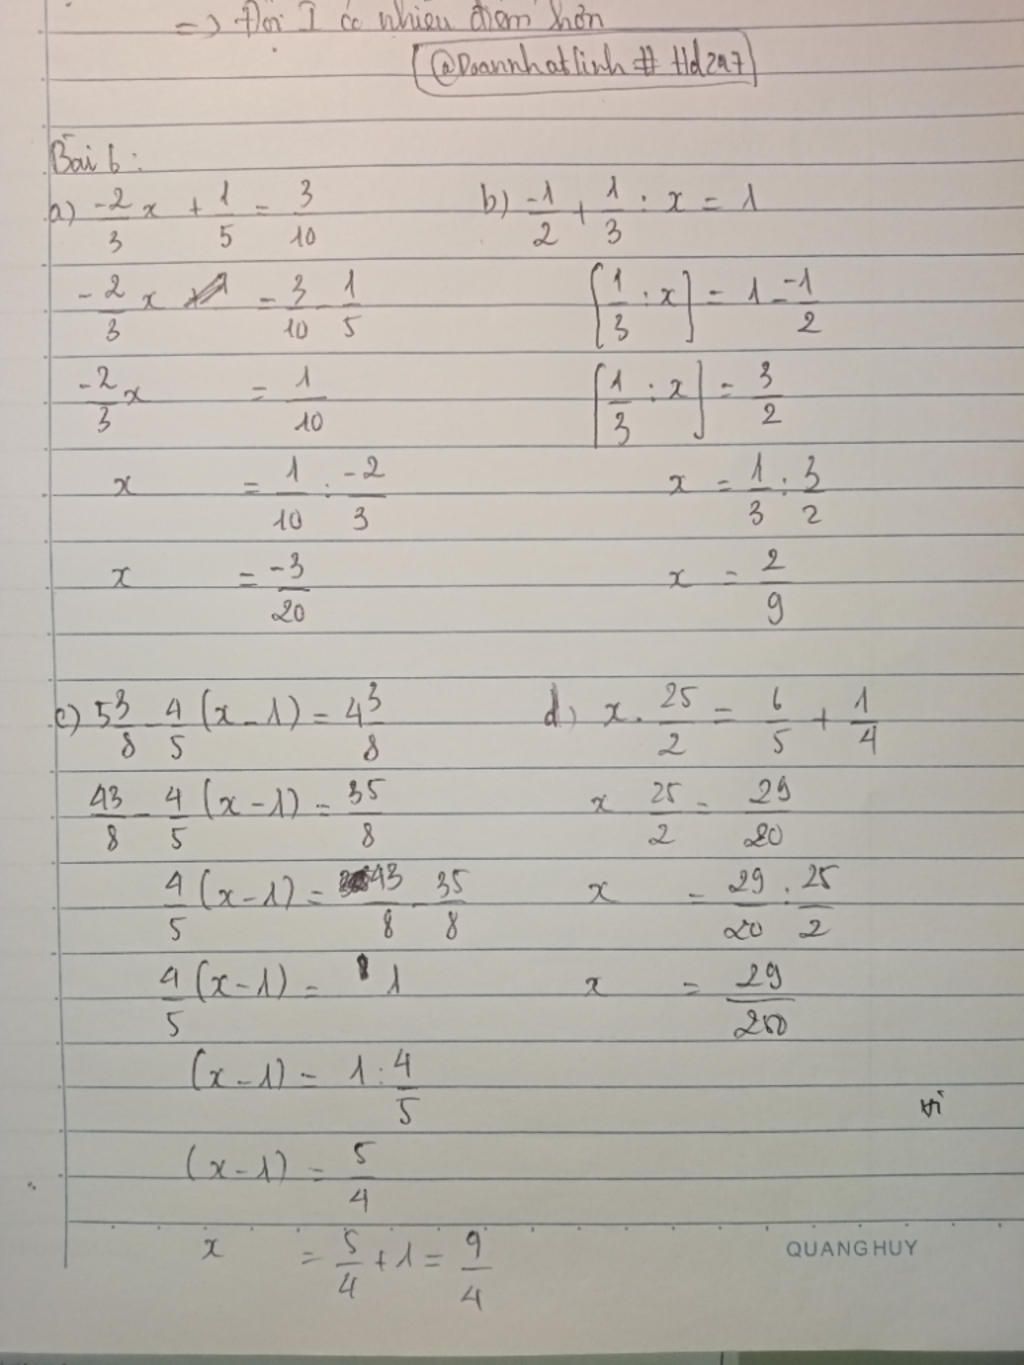 => Đội I có nhiều điểm hơn
@Doannhatlinh # Hd247
Bài 6:
a) -2/3 x + 1/5 = 3/10
-2/3 x = 3/10 - 1/5
-2/3 x = 1/10
x = 1/10 : -2/3
x = -3/20
b) -1/2 + 1/3 : x = 1
[1/3 : x] = 1 - -1/2
[1/3 : x] = 3/2
x = 1/3 : 3/2
x = 2/9
c) 5 3/8 - 4/5 (x - 1) = 4 3/8
43/8 - 4/5 (x - 1) = 35/8
4/5 (x - 1) = 43/8 - 35/8
4/5 (x - 1) = 1
(x - 1) = 1 : 4/5
(x - 1) = 5/4
x = 5/4 + 1 = 9/4
d) x . 25/2 = 6/5 + 1/4
x 25/2 = 29/20
x = 29/20 : 25/2
x = 29/250
vì
QUANG HUY